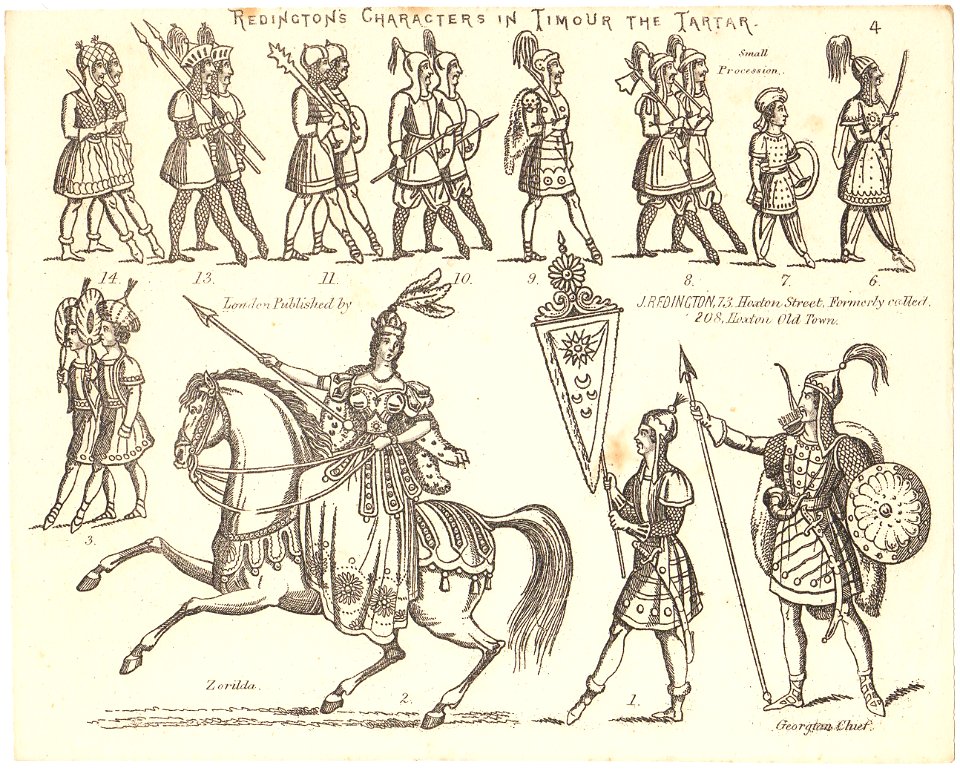 REDINGTON'S CHARACTERS IN TIMOUR THE TARTAR.
4
Small
Procession.
14.
13.
11.
10.
9.
8.
7.
6.
London Published by
J. REDINGTON, 73, Hoxton Street, Formerly called,
208, Hoxton Old Town.
3.
Zorilda.
2.
1.
Georgian Chief.